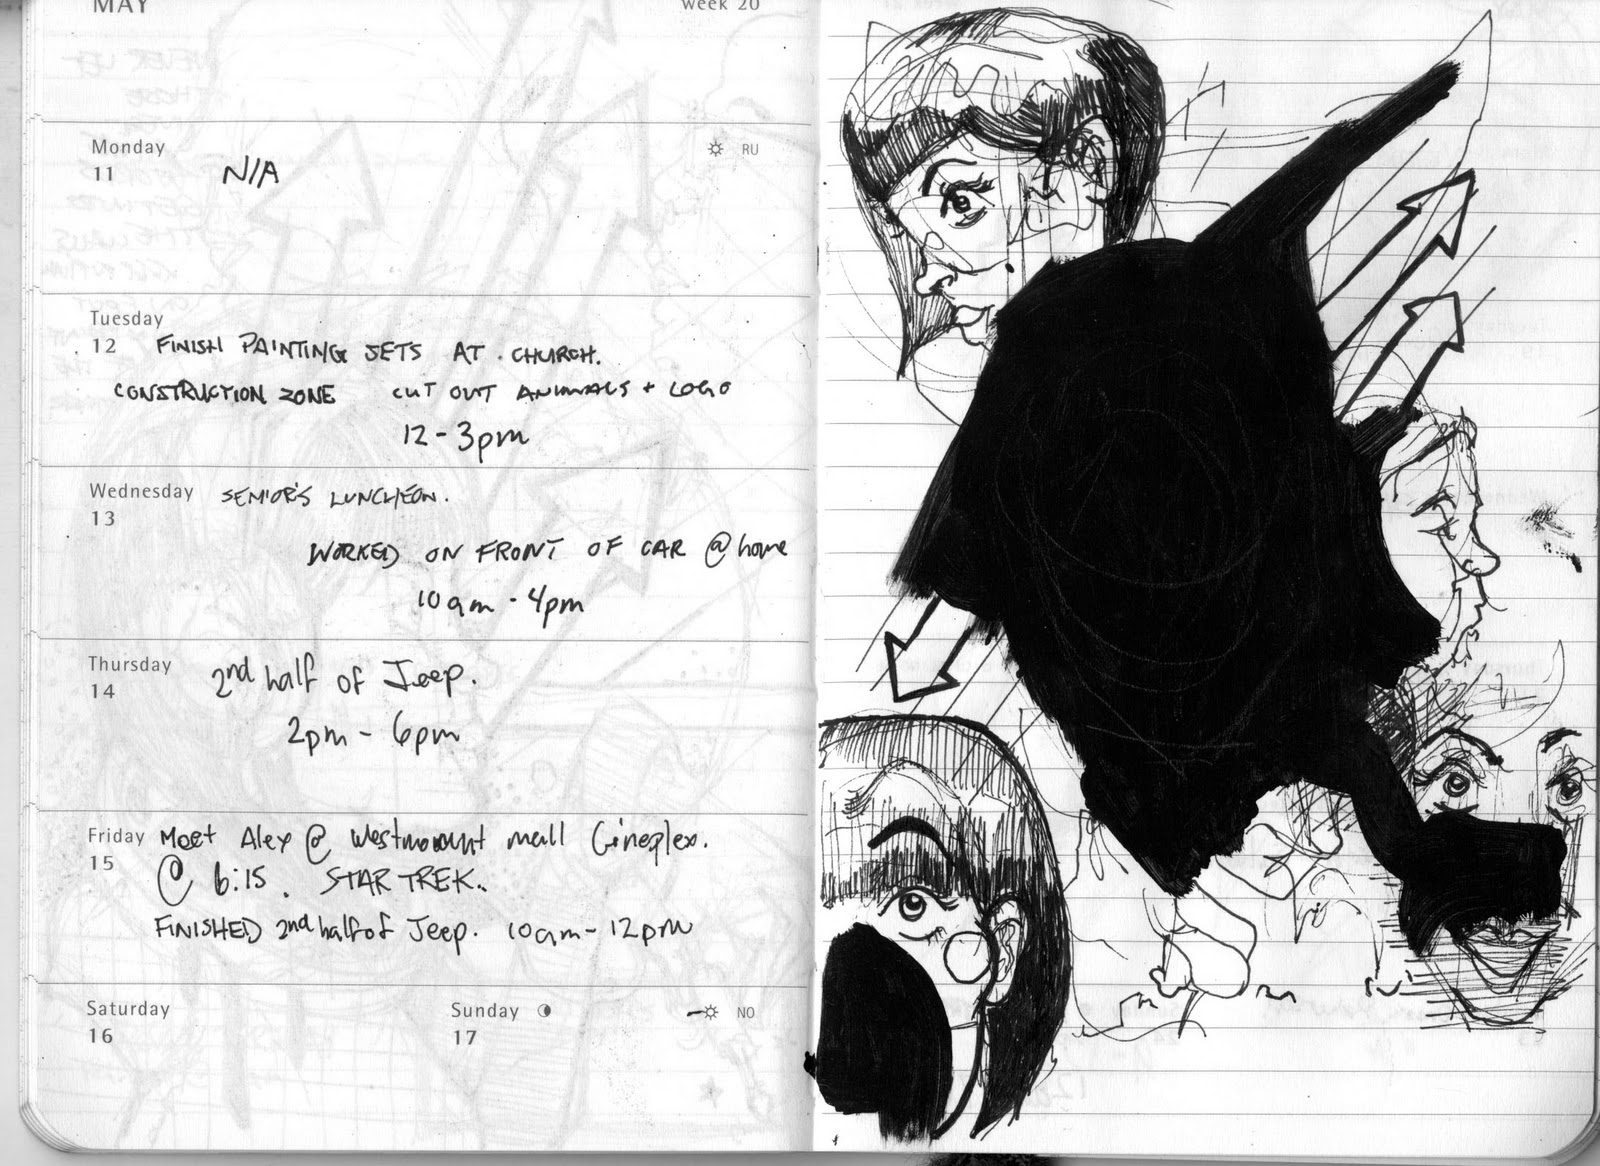 MAY
Week 20
Monday
11
N/A
RU
Tuesday
12
FINISH PAINTING SETS AT CHURCH.
CONSTRUCTION ZONE CUT OUT ANIMALS + LOGO
12 - 3pm
Wednesday
13
SENIOR'S LUNCHEON.
WORKED ON FRONT OF CAR @ home
10am - 4pm
Thursday
14
2nd half of Jeep.
2pm - 6pm
Friday
15
Meet Alex @ Westmount mall Cineplex.
@ 6:15. STAR TREK..
FINISHED 2nd half of Jeep. 10am - 12pm
Saturday
16
Sunday
17
NO